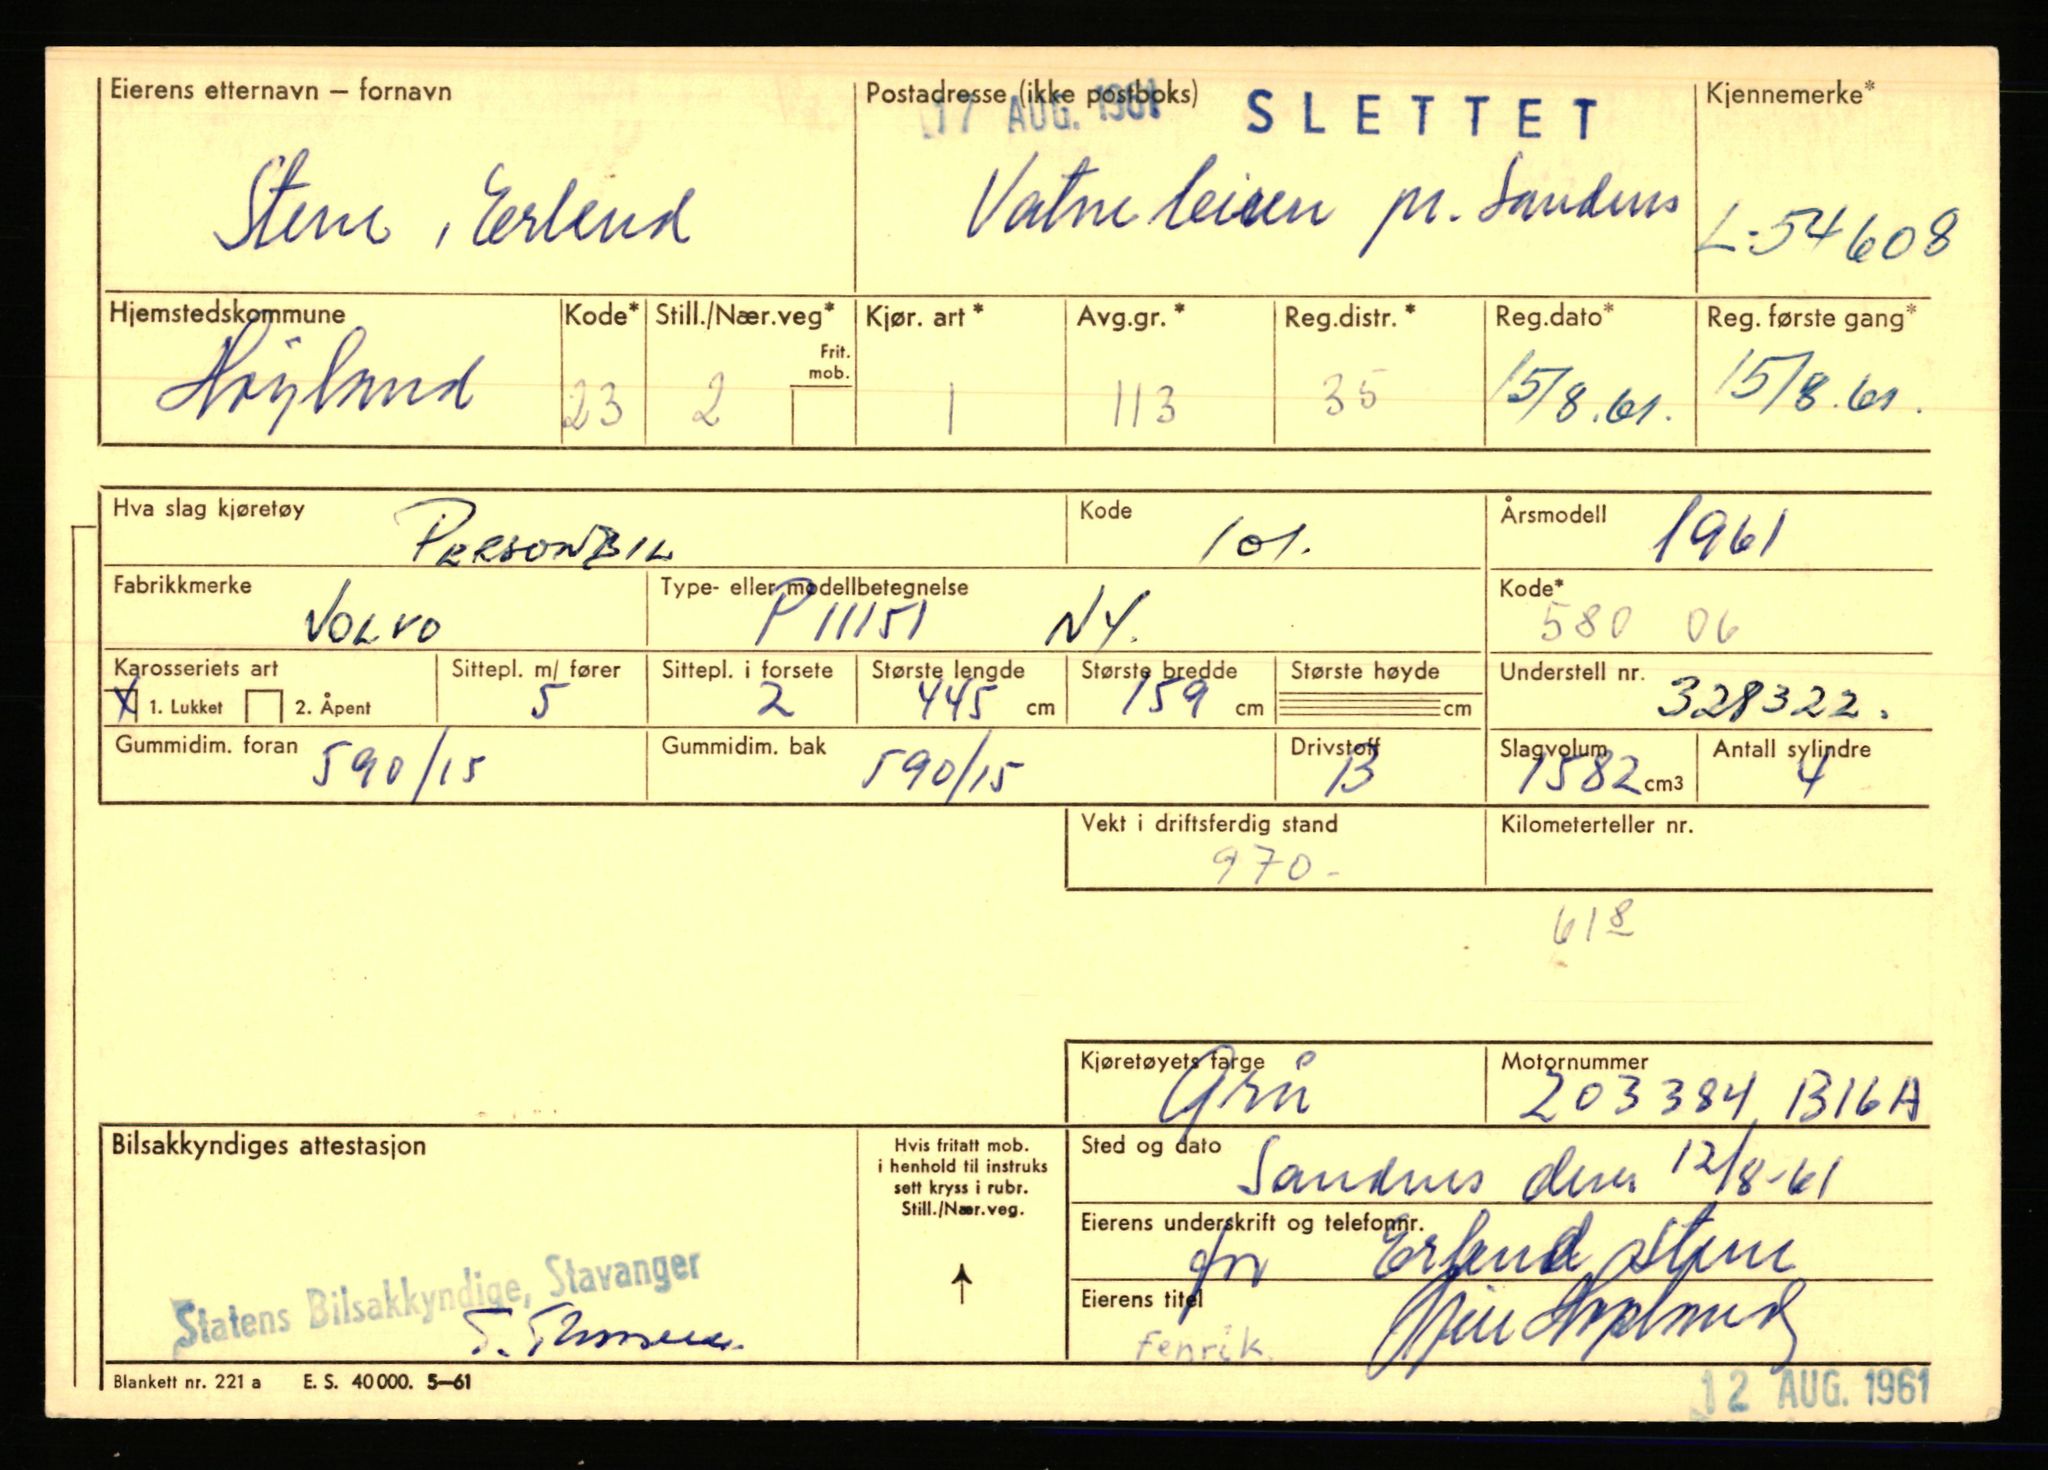 Eierens etternavn – fornavn Postadresse (ikke postboks) Kjennemerke*
17 AUG. 1961 SLETTET
Stene, Erland Vatneleiren pr. Sandnes L-54608
Hjemstedskommune Kode* Still./Nær.veg* Kjør. art* Avg.gr.* Reg.distr.* Reg.dato* Reg. første gang*
Frit. mob.
Høyland 23 2 1 113 35 15/8.61. 15/8.61.
Hva slag kjøretøy Kode Årsmodell
PERSONBIL 101. 1961
Fabrikkmerke Type- eller modellbetegnelse Kode*
VOLVO P 11151 NY. 580 06
Karosseriets art Sittepl. m/ fører Sittepl. i forsete Største lengde Største bredde Største høyde Understell nr.
X 1. Lukket 2. Åpent 5 2 445 cm 159 cm cm 328322.
Gummidim. foran Gummidim. bak Drivstoff Slagvolum Antall sylindre
590/15 590/15 B 1582 cm3 4
Vekt i driftsferdig stand Kilometerteller nr.
970-
61 8
Kjøretøyets farge Motornummer
Grå 203384 B16A
Bilsakkyndiges attestasjon Hvis fritatt mob. i henhold til instruks sett kryss i rubr. Still./Nær.veg. Sted og dato
Sandnes den 12/8-61
Eierens underskrift og telefonnr.
for Erland Stene
Statens Bilsakkyndige, Stavanger
Eierens titel
Fenrik
Blankett nr. 221 a E. S. 40 000. 5–61
12 AUG. 1961